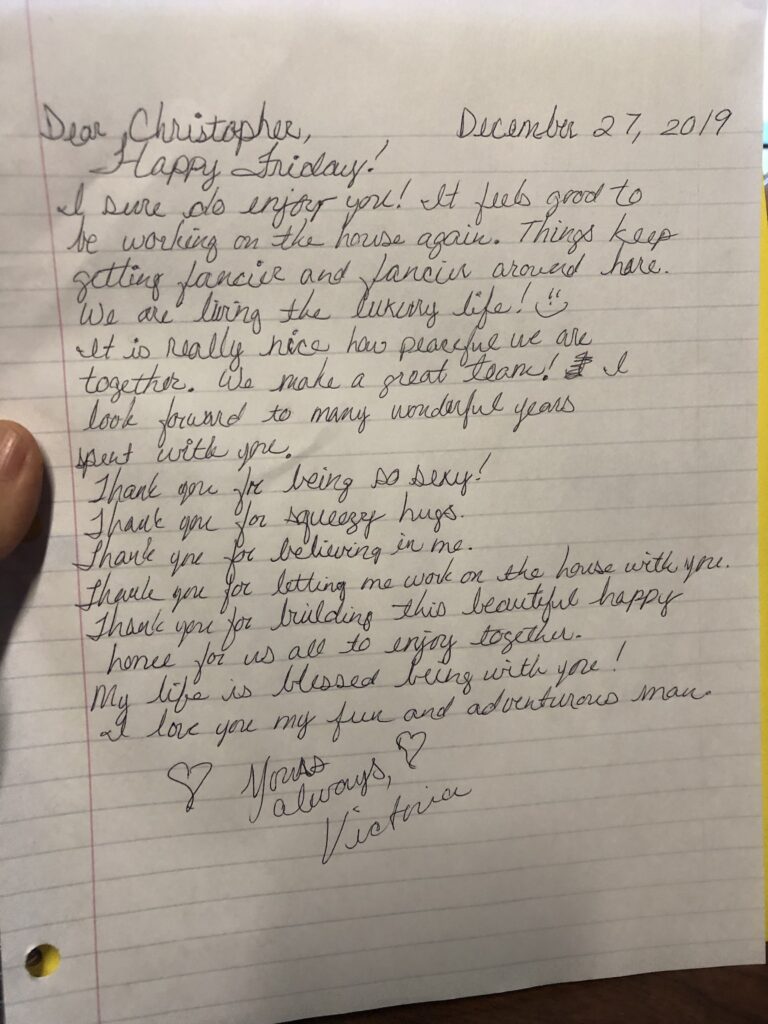 Dear Christopher, December 27, 2019
Happy Friday!
I sure do enjoy you! It feels good to
be working on the house again. Things keep
getting fancier and fancier around here.
We are living the luxury life!
It is really nice how peaceful we are
together. We make a great team! I
look forward to many wonderful years
spent with you.
Thank you for being so sexy!
Thank you for squeezy hugs.
Thank you for believing in me.
Thank you for letting me work on the house with you.
Thank you for building this beautiful happy
home for us all to enjoy together.
My life is blessed being with you!
I love you my fun and adventurous man.
♡ Yours ♡
always,
Victoria